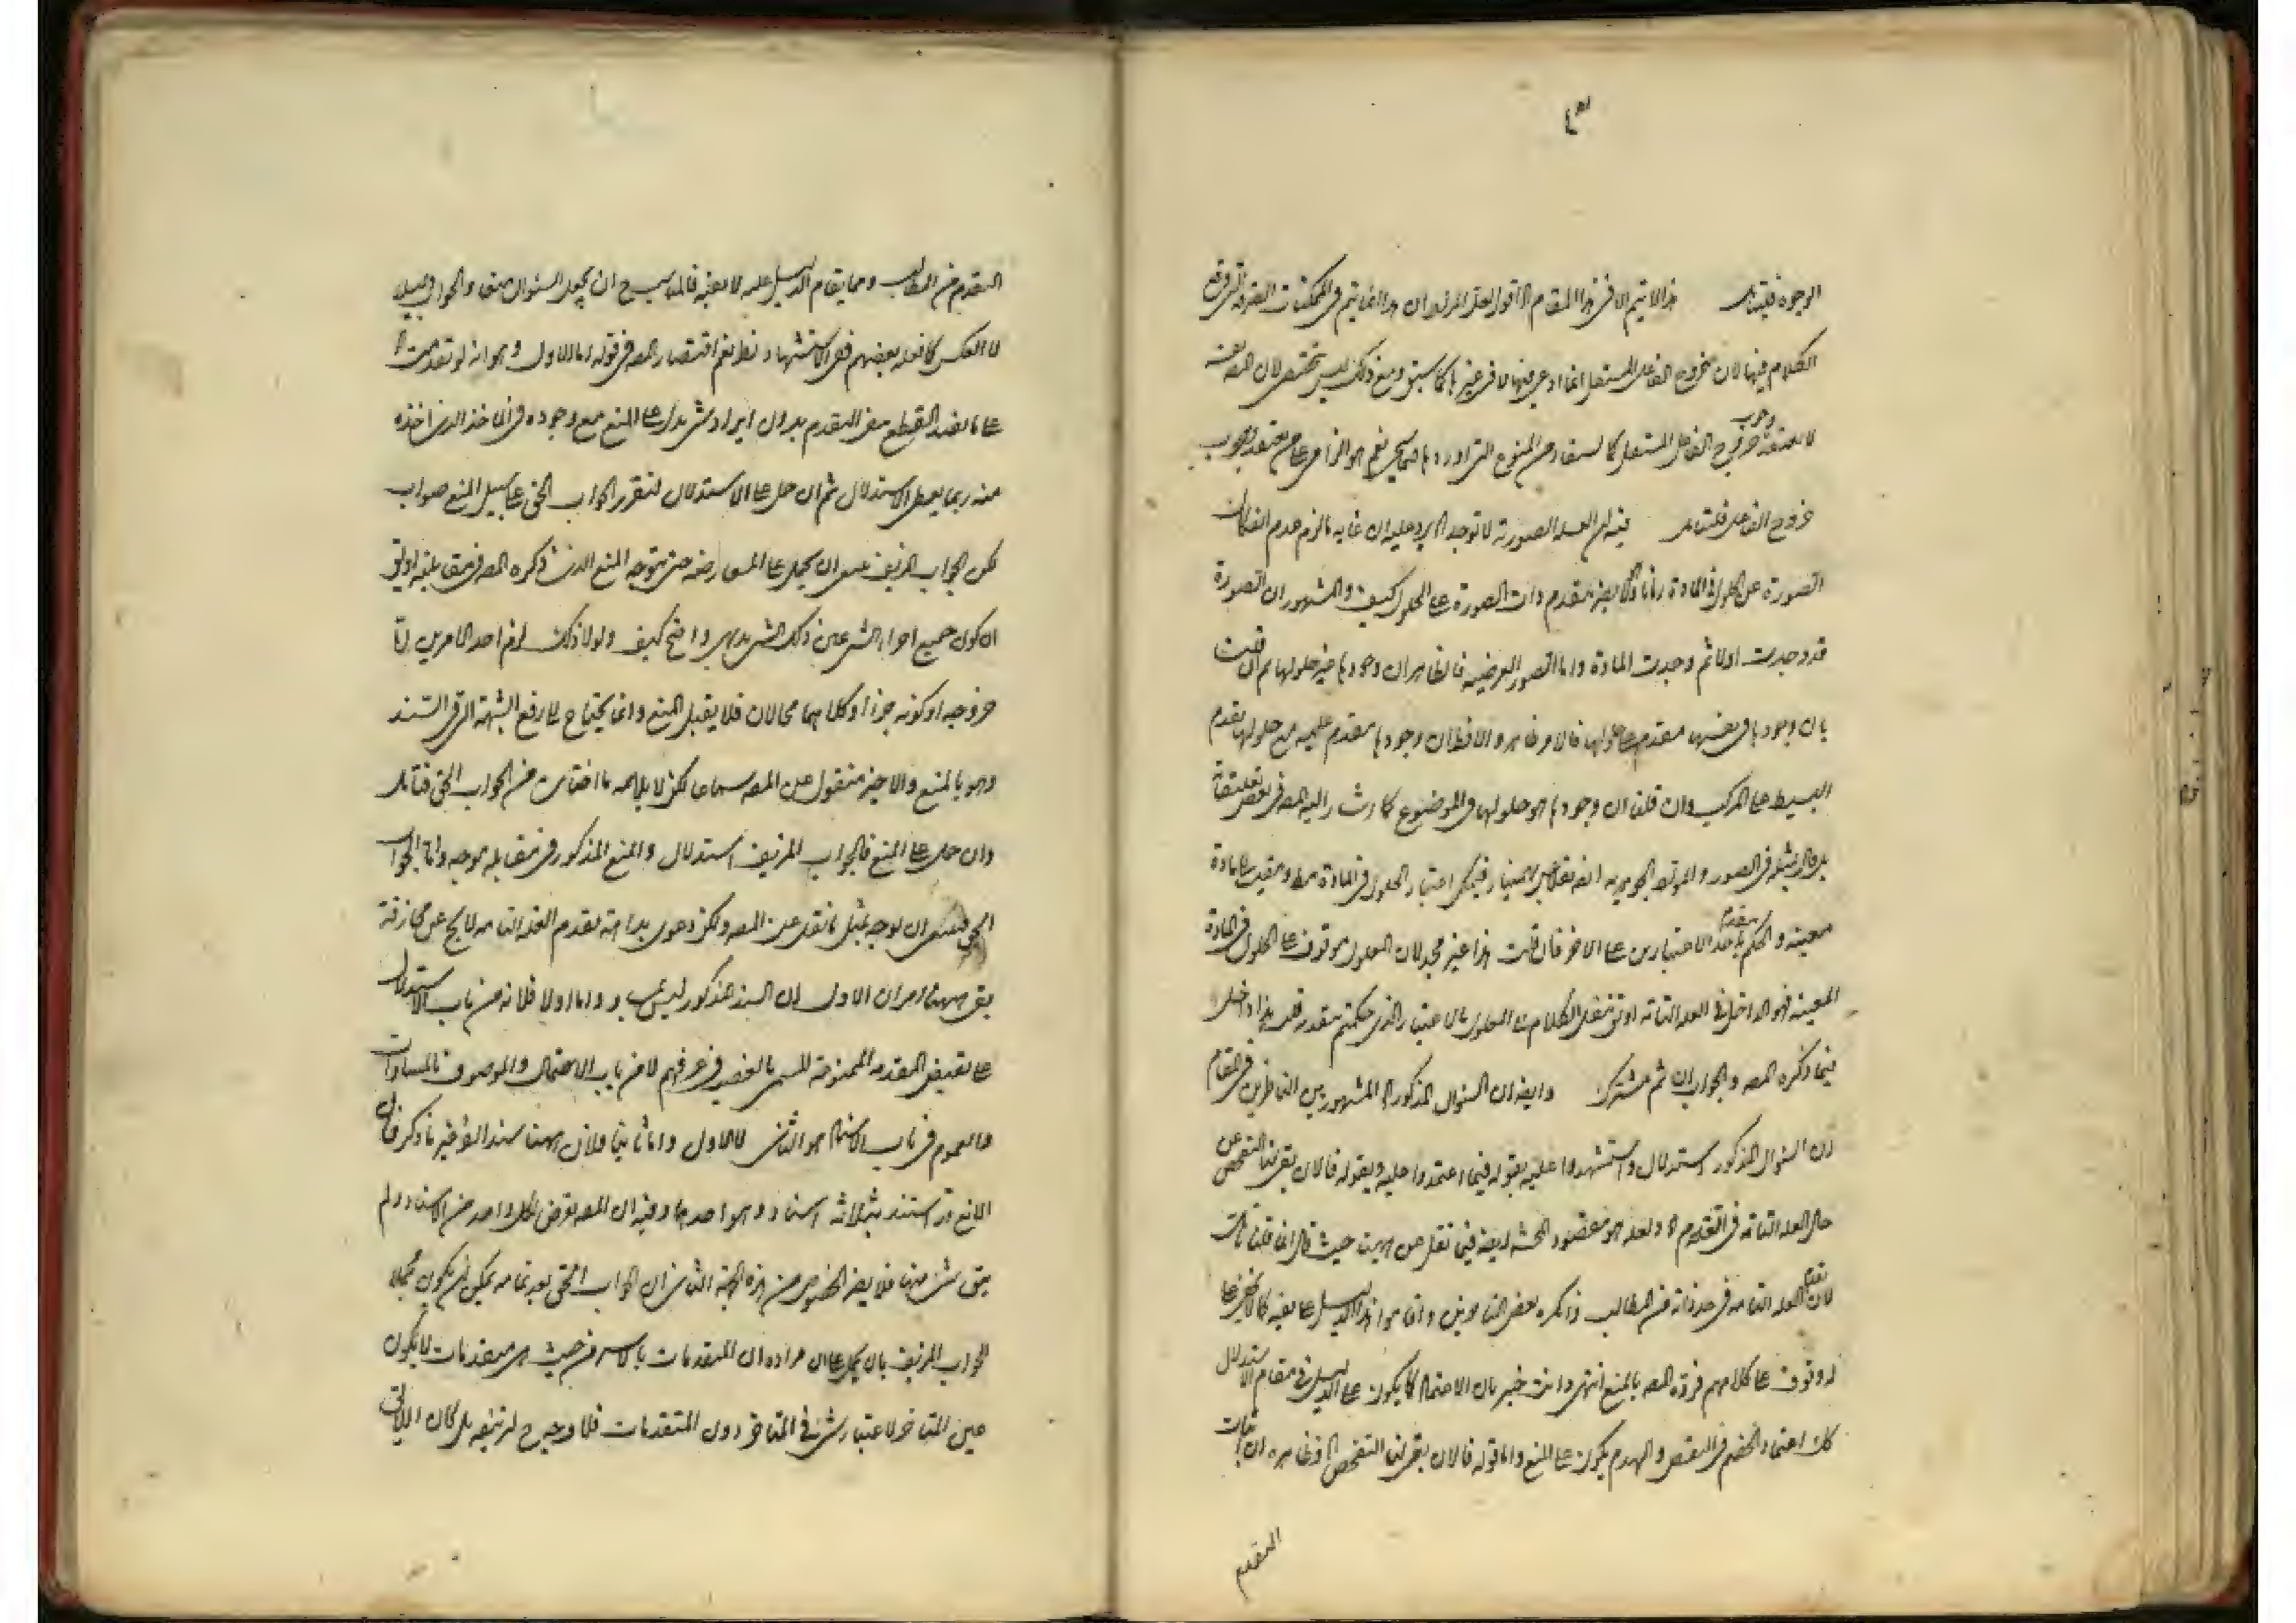 ٣
الوجوه فليتأمل هذا لا يتم الا في هذا المقام اقول لعل المراد ان هذا انما يتم في الممكنات الصرفة التي وقع
الكلام فيها لان خروج الفاعل المستقل انما ادعي فيها لا في غيرها كما سبق ومع ذلك ليس لان المصنف
لا يعتقد وجوب خروج الفاعل المستقل كما يستفاد من المنوع التي اوردها فيما سيجئ نعم هو الزامي على من يعتقد بوجوب
خروج الفاعل فليتأمل فيه ان العلة الصورية لا توجد يرد عليه ان غاية ما لزم عدم انفكاك
الصورة عن الحلول في المادة بتقدم ذات الصورة على الحلول كيف والمشهور ان الصورة
قد وجدت اولا ثم وجدت المادة واما الصور العرضية فالظاهر ان وجودها عين حلولها ثم ان قلت
بان وجودها في نفسها مقدم على حلولها فالامر ظاهر والا فنقول ان وجودها مقدم عليه مع حلولها تقدم
البسيط على المركب وان قلت ان وجودها هو حلولها في الموضوع كما اشار اليه المصنف في بعض تعليقاته
بل قال بمثله في الصور الجوهرية ايضا نقلا عن بهمنيار فيمكن اعتبار الحلول في المادة مط ومقيسا الى مادة
معينة والحكم بتقدم احد الاعتبارين على الاخر فان قلت هذا غير مجد لان المعلول موقوف على الحلول في المادة
المعينة فهو الداخل في العلة التامة او ننقل الكلام الى المعلول بالاعتبار الذي حكمتم بتقدمه قلت هذا داخل
فيما ذكره المصنف والجواب ثم مشترك وايضا ان السؤال المذكور المشهور بين الناظرين في المقام
ان السؤال المذكور استدلال واستشهدوا عليه بقوله فيما اعتمدوا عليه وبقوله فالان بقي لنا التفحص عن
حال العلة التامة في التقدم ولعله هو مقصود المحشي ايضا فيما نقل عنه حيث قال انما قلنا ذلك
لان تقدم العلة التامة في حد ذاته من المطالب ذكره بعض الناظرين واقاموا هذا الدليل على نفيه كما لا يخفى على
له وقوف على كلامهم فرده المصنف بالمنع انتهى وانت خبير بان الاعتماد كما يكون على الدليل في مقام الاستدلال
كذلك اعتماد الخصم في النقض والهدم يكون على المنع واما قوله فالان بقي لنا التفحص فظاهره ان اثبات
التقدم
التقدم من المطالب ومما يقام الدليل عليه لا نفيه فالمناسب ح ان يجعل السؤال منعا والجواب دليلا
لا العكس كما فعله بعضهم ففي الاستشهاد نظر نعم اقتصار المصنف في قوله اما الاول وهو انه لو تقدمت
على ما يفيد القطع بنفي التقدم بدون ايراد شئ يدل على المنع مع وجوده في المأخذ الذي اخذه
منه ربما يعطي الاستدلال ثم ان حمل على الاستدلال فتقرير الجواب الحق على سبيل المنع صواب
لكن الجواب المزيف ينبغي ان يحمل على المعارضة حتى يتوجه المنع الذي ذكره المصنف في مقابلته اذ
ان كون جميع اجزاء الشئ عين ذلك الشئ بديهي واضح كيف ولولا ذلك لزم احد الامرين اما
خروجه او كونه جزءا وكلاهما محالان فلا يقبل المنع وانما يحتاج الى رفع الشبهة التي في السند
وهو بالمنع والاخير منقول عن المصنف سماعا لكن لا يلائمه ما اختاره من الجواب الحق فتأمل
وان حمل على المنع فالجواب المزيف استدلال والمنع المذكور في مقابله موجه واما الجواب
الحق فينبغي ان يوجه بمثل ما نقل عن المصنف ولكن دعوى بداهة تقدم العلة التامة لا يخ عن مجازفة
بقي ههنا امران الاول ان السند المذكور ليس بمساو اما اولا فلانه من باب الاستدلال
على نقيض المقدمة الممنوعة المسمى بالغصب في عرفهم لا من باب الاحتمال والموصوف بالمساواة
والعموم في باب الاسناد هو الثاني لا الاول واما ثانيا فلان ههنا سندا اخر غير ما ذكر فان
المانع قد استند بثلاثة اسناد وهو احدها وفيه ان المصنف تعرض لكل واحد من الاسناد ولم
يبق شئ منها فلا يضر الخصوص من هذه الجهة الثاني ان الجواب الحق بعد تمامه يمكن ان يكون محملا
للجواب المزيف بان يحمل على ان مراده ان المتقدمات بالاسر من حيث هي متقدمات لا يكون
عين المتأخر لاعتبار شئ في المتأخر دون المتقدمات فلا وجه ح لتزييفه بل كان اللائق